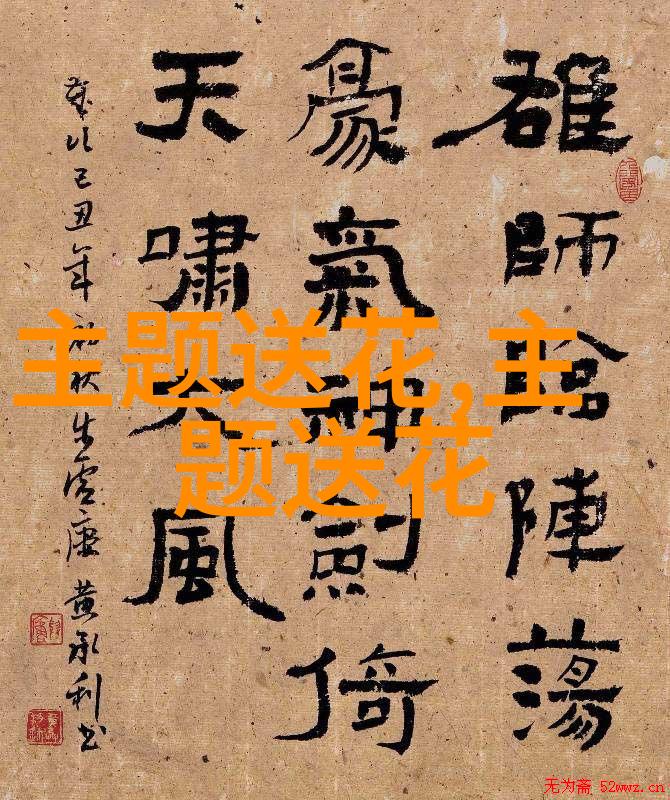 雄師陣蕩
豪氣神劍倚
天嘯大風
歲次己丑年初秋 黄承利書
主题送花,主
题送花
无为斋 52wwz.cn